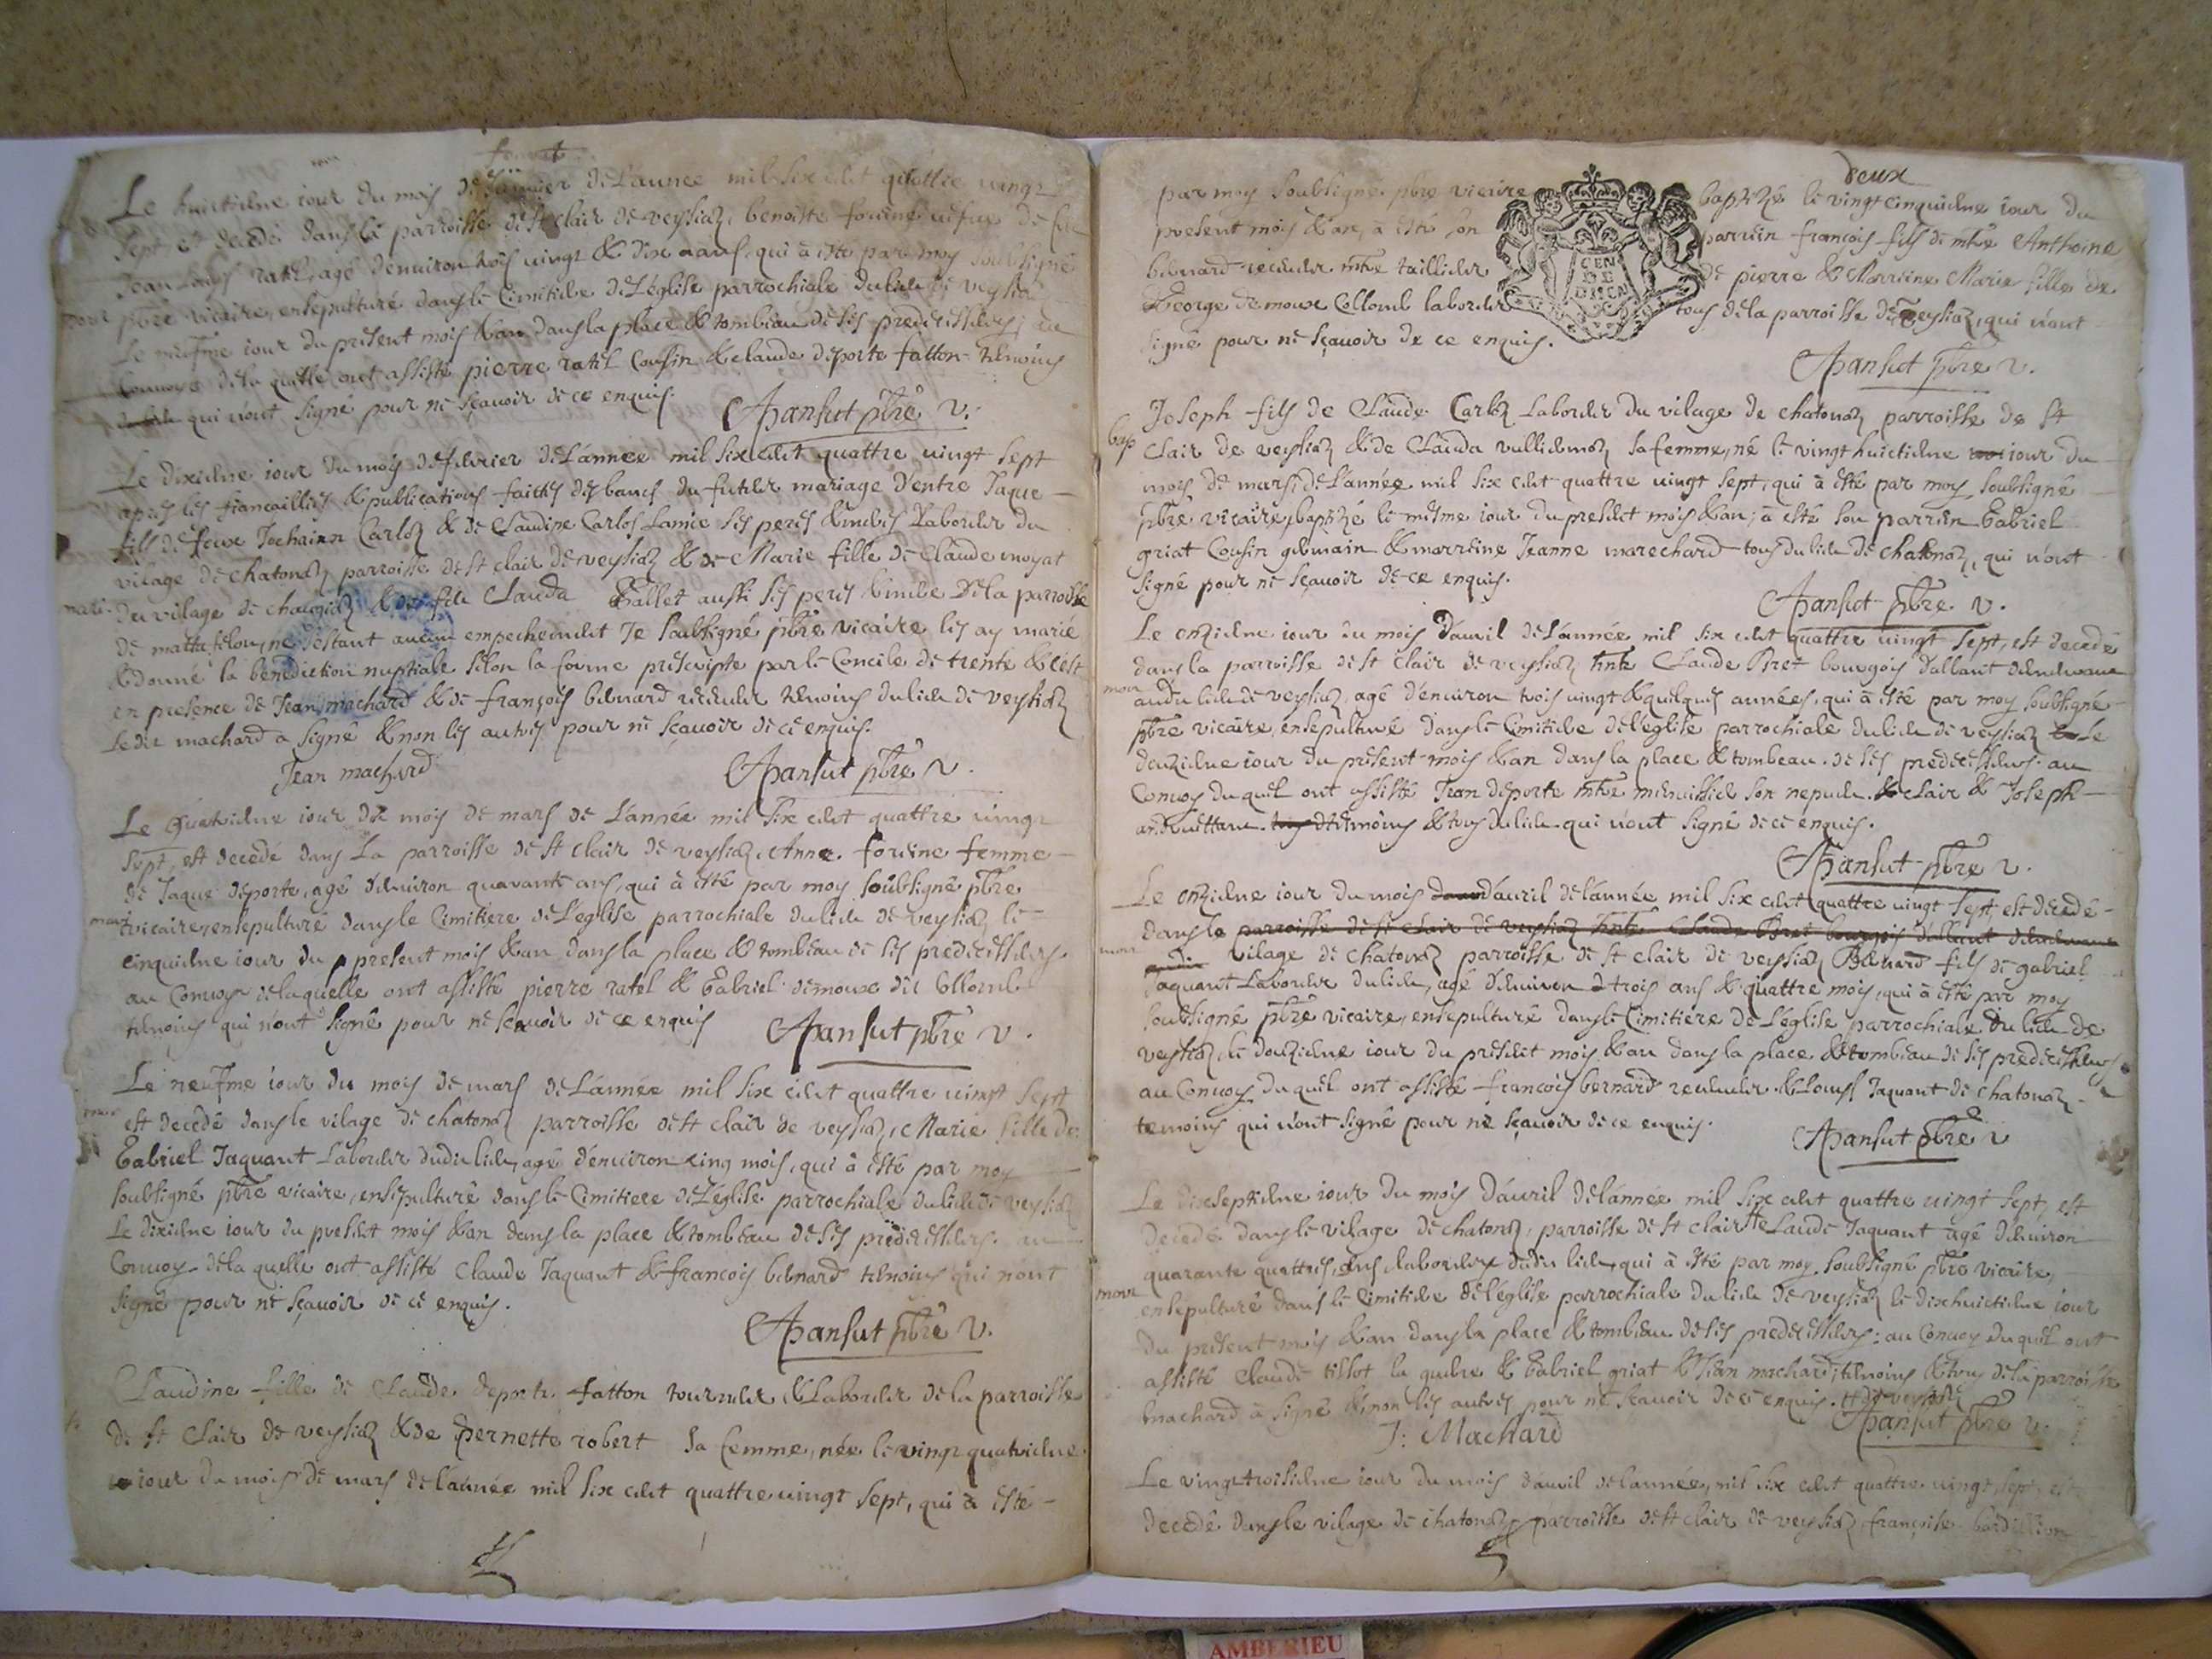 Le huictiesme iour du mois de de L'année mil six cent quattre vingt
sept est decedé dans la parroisse de st clair de veyziaz, benoiste vefue de feu
Jean ratel, agé d'enuiron trois vingt & dix ans, qui à esté par moy soubsigné
pbre vicaire, ensepulturé dans le Cimitiere de L'église parrochiale du lieu de veyziaz
Le mesme iour du present mois & an, dans la place & tombeau de ses predecesseurs; au
Convoys de la quelle ont assisté pierre ratel Cousin & claude deporte fatton temoins
qui n'ont signé pour ne sçavoir de ce enquis.
Pansut pbre v.
Le dixiesme iour du mois de febvrier de L'année mil six cent quattre vingt sept
apres les fiançailles & publications faictes des bancs du futeur mariage d'entre Jaque
fils de feux Carloz & de Claudine Carlos Lamie ses peres & meres Laboureur du
vilage de chatonaz parroisse de st clair de veyziaz & de Marie fille de Claude moyat
mari. du vilage de & de feu Clauda Gallet aussi ses peres & mere De la parroisse
de mattafelon, ne s'estant aucun empechement Je soubsigné pbre vicaire les ay marié
& donné la benediction nuptiale selon la forme prescripte par le Concile de trente & c'est
en presence de Jean machard & de françois bernard temoins du lieu de veyziaz
Ledit machard a signé & non les autres pour ne sçavoir de ce enquis.
Jean machard
Pansut pbre v.
Le Quatriesme iour du mois de mars de L'année mil six cent quattre vingt
sept, est decedé dans La parroisse de st clair de veyziaz, Anne femme
de Jaque deporte, agé d'enuiron quarante ans, qui à esté par moy soubsigné pbre
vicaire, ensepulturé dans le Cimitiere de L'eglise parrochiale du lieu de veyziaz le
cinquiesme iour du present mois & an dans la place & tombeau de ses predecesseurs.
au Convoys de laquelle ont assisté pierre ratel & Gabriel demoux dit Collomb
temoins qui n'ont signé pour ne scavoir de ce enquis
Pansut pbre v.
Le neufme iour du mois de mars de L'année mil six cent quattre vingt sept
est decedé dans le vilage de chatonaz parroisse de st clair de veyziaz, Marie fille de
Gabriel Jaquant Laboureur dudit lieu, agé d'enuiron cinq mois, qui à esté par moy
soubsigné pbre vicaire, ensepulturé dans le Cimitiere de L'église parrochiale du lieu de veyziaz
Le dixiesme iour du present mois & an dans la place & tombeau de ses predecesseurs. au
Convoy de la quelle ont assisté Claude Jaquant & francois bernard temoins qui n'ont
signé pour ne sçavoir de ce enquis.
Pansut pbre v.
Claudine fille de Claude deporte fatton & Laboureur de la parroisse
de st Clair de veyziaz & de pernette robert sa femme, née le vingt quatriesme
iour du mois de mars de L'année mil six cent quattre vingt sept, qui à esté
deux
par moy soubsigné pbre vicaire baptizé le vingt cinquiesme iour du
present mois & an, à esté son parrein françois fils de mtre Anthoine
bernard mtre taillieur de pierre & Marreine Marie fille de
George demoux Collomb laboureur tous de la parroisse de veyziaz, qui n'ont
signé pour ne sçavoir de ce enquis.
GEN
DE
DIION
Pansut pbre v.
bap Joseph fils de Claude Carloz Laboureur du vilage de chatonaz parroisse de st
Clair de veyziaz & de Clauda vulliermoz sa femme, né le vingt huictiesme iour du
mois de mars, de L'année mil six cent quattre vingt sept, qui à esté par moy soubsigné
pbre vicaire, baptizé le mesme iour du present mois & an; à esté son parrein Gabriel
griat Cousin germain & marreine Jeanne marechard tous du lieu de chatonaz, qui n'ont
signé pour ne sçavoir de ce enquis.
Pansut pbre v.
Le onziesme iour du mois d'avril de L'année mil six cent quattre vingt sept, est decedé
dans la parroisse de st clair de veyziaz Claude Bret bourgois
mort audit lieu de veyziaz, agé d'enuiron trois vingt & quelques années, qui à esté par moy soubsigné
pbre vicaire, ensepulturé dans le Cimitiere de L'eglise parrochiale du lieu de veyziaz Le
douziesme iour du present mois & an dans la place & tombeau de ses predecesseurs. au
Convoy du quel ont assisté Jean deporte mtre menuisier son nepueu. & clair & Joseph
temoins & tous du lieu qui n'ont signé de ce enquis.
Pansut pbre v.
Le onziesme iour du mois d'auril de L'année mil six cent quattre vingt sept, est decedé
dans le parroisse de st clair de veyziaz Claude Bret bourgois
vilage de chatonaz parroisse de st clair de veyziaz Benard fils de gabriel
Jaquant Laboureur du lieu, agé d'enuiron trois ans & quattre mois, qui à esté par moy
soubsigné pbre vicaire, ensepulturé dans le Cimitiere de L'église parrochiale du lieu de
veyziaz, le douziesme iour du present mois & an dans la place & tombeau de ses predecesseurs
au Convoy du quel ont assisté francois bernard & Louys Jaquant de chatonaz
temoins qui n'ont signé pour ne sçavoir de ce enquis.
Pansut pbre v
Le dixseptiesme iour du mois d'auril de L'année mil six cent quattre vingt sept, est
decedé dans le vilage de chatonaz, parroisse de st clair Claude Jaquant agé d'enuiron
quarante quattres ans laboureux dudit lieu, qui à esté par moy soubsigné pbre vicaire,
mort ensepulturé dans le Cimitiere de L'église parrochiale du lieu de veyziaz le dixhuictiesme iour
du present mois & an dans la place & tombeau de ses predecesseurs: au Convoy du quel ont
assisté Claude tissot & Gabriel griat & Jean machard, temoins & tous de la parroisse
machard à signé & non les autres pour ne sçavoir de ce enquis. de veyziaz
J: Machard
Pansut pbre v.
Le vingt troisiesme iour du mois d'avril de L'année, mil six cent quattre vingt, sept, est
decedé dans le vilage de chatonaz parroisse de st clair de veyziaz françoise
AMBERIEU